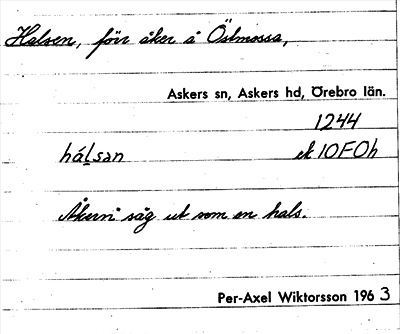 Halsen, förr åker å Östmossa,
Askers sn, Askers hd, Örebro län.
1244
hálsan ek 10F0h
Åkern såg ut som en hals.
Per-Axel Wiktorsson 1963